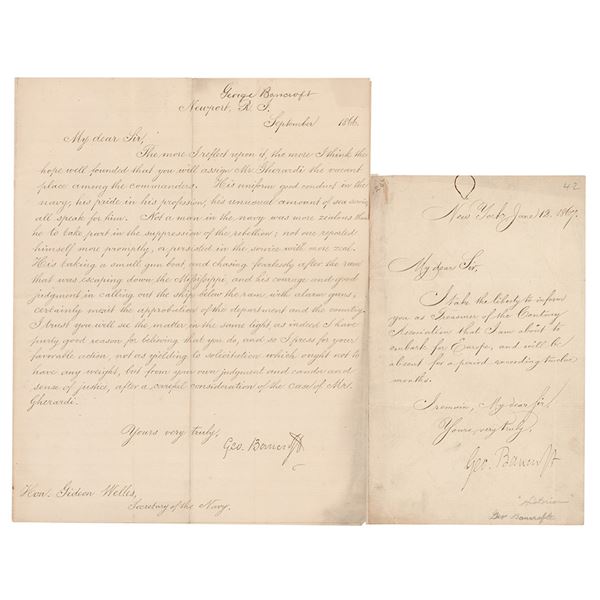 George Bancroft
Newport, R. I.
September 1866.
My dear Sir,
The more I reflect upon it, the more I think the
hope well founded that you will assign Mr Gherardi the vacant
place among the commanders. His uniform good conduct in the
navy; his pride in his profession; his unusual amount of sea service
all speak for him. Not a man in the navy was more zealous than
he to take part in the suppression of the rebellion; not one reported
himself more promptly, or persisted in the service with more zeal.
His taking a small gun boat and chasing fearlessly after the ram
that was escaping down the Mississippi, and his courage and good
judgment in calling out the ship below the ram with alarm guns,
certainly merit the approbation of the department and the country.
I trust you will see the matter in the same light as indeed I have
pretty good reason for believing that you do, and so I press for your
favorable action, not as yielding to solicitation which ought not to
have any weight, but from your own judgment and candor and
sense of justice, after a careful consideration of the case of Mr.
Gherardi.
Yours very truly,
Geo. Bancroft
Hon. Gideon Welles,
Secretary of the Navy.
42
New York, June 12. 1867.
My dear Sir,
I take the liberty to inform
you as Treasurer of the Century
Association that I am about to
embark for Europe, and will be
absent for a period exceeding twelve
months.
I remain, My dear Sir,
Yours, very truly,
Geo. Bancroft
"Historian"
Geo Bancroft